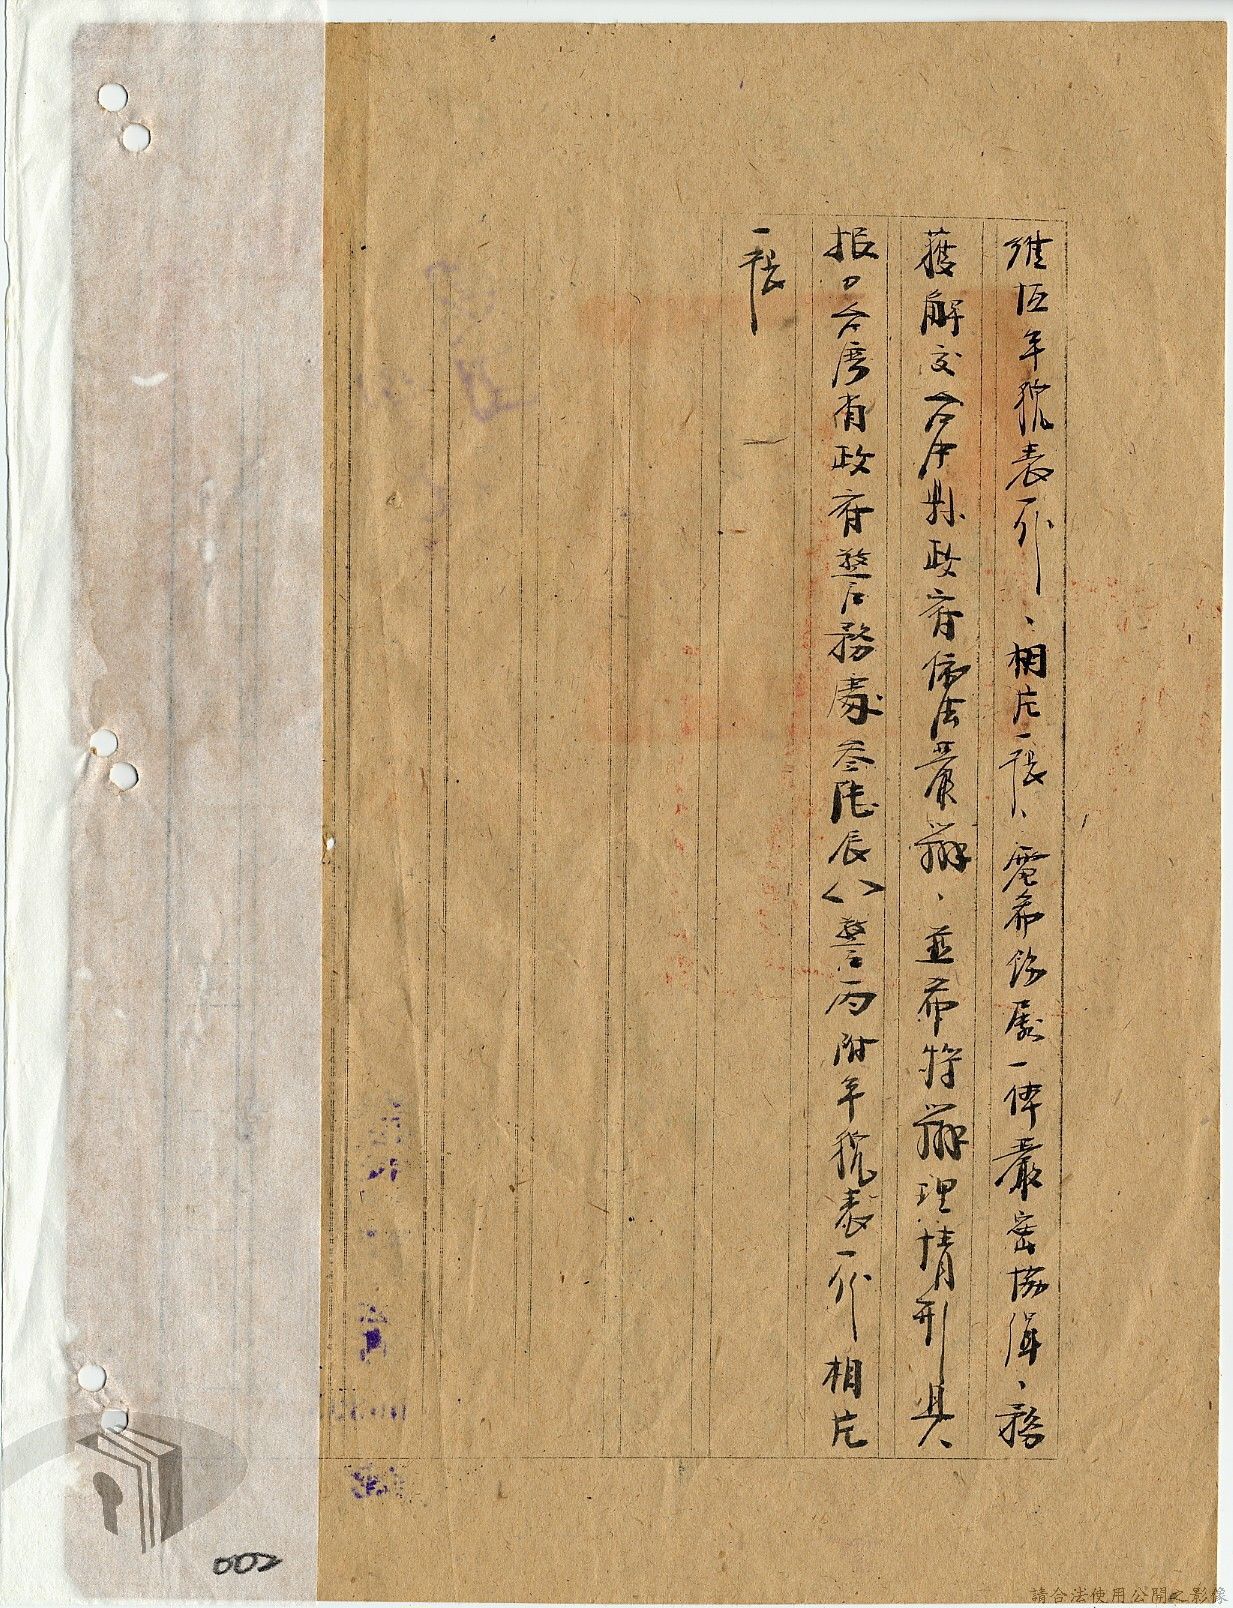 維恆年貌表一份、相片一張、電希飭屬一体嚴密協緝、務
獲解交台中縣政府依法嚴辦、並希將辦理情形具
報〇台灣省政府警務處叁陸辰〈〉警丙附年貌表一份相片
一張
002
請合法使用公開之影像